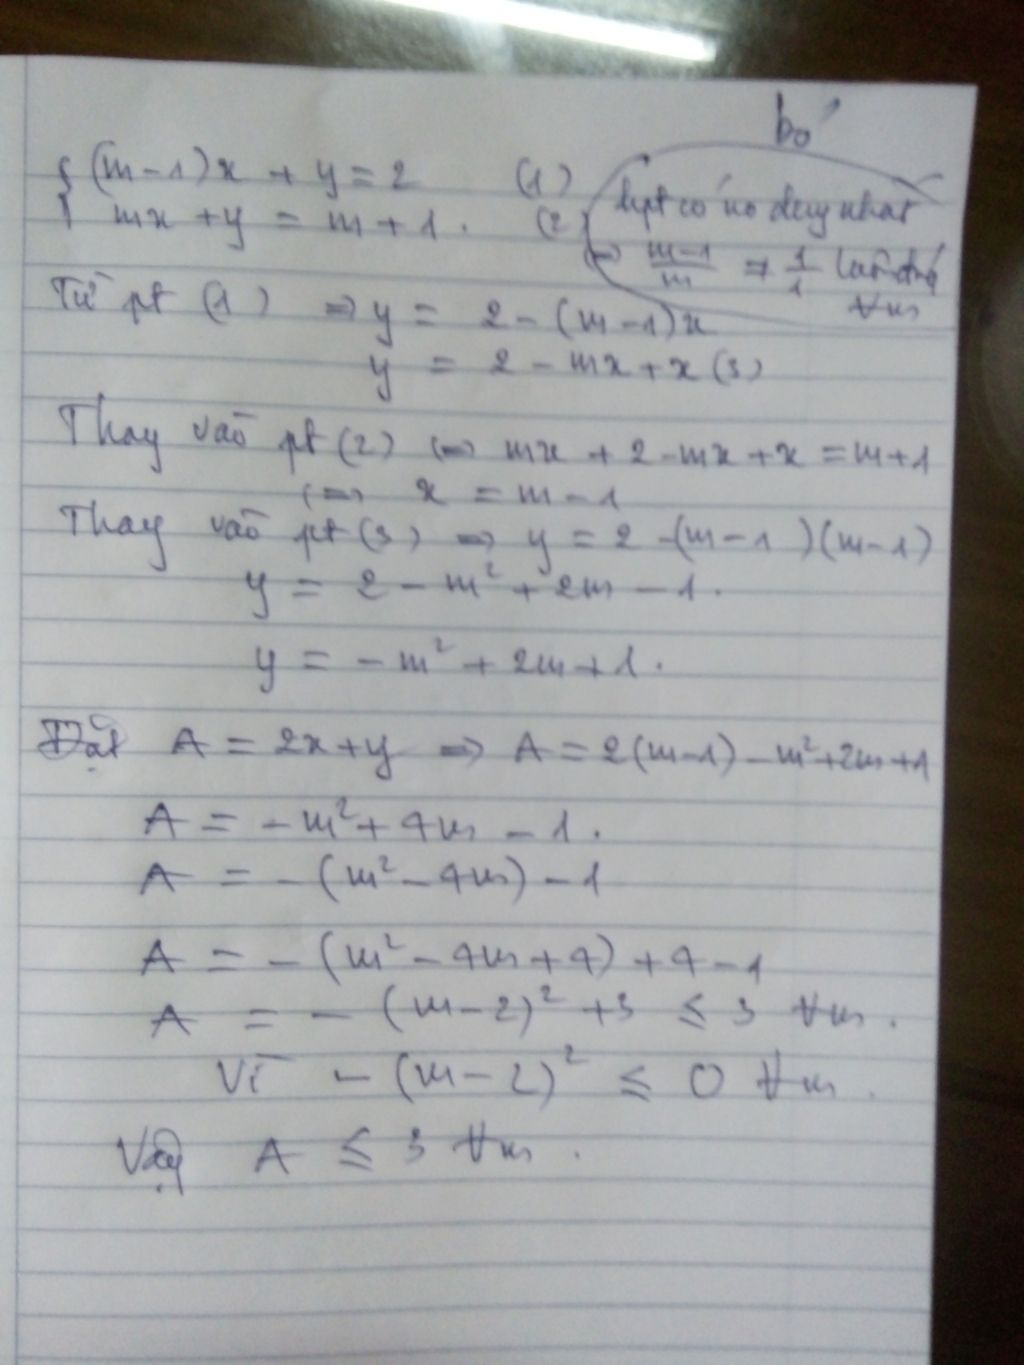 bỏ
{ (m-1)x + y = 2 (1)
mx + y = m + 1. (2)
hpt có no duy nhất
<=> m-1/m ≠ 1/1 luôn đúng
∀m
Từ pt (1) => y = 2 - (m-1)x
y = 2 - mx + x (3)
Thay vào pt (2) <=> mx + 2 - mx + x = m+1
<=> x = m - 1
Thay vào pt (3) => y = 2 - (m-1)(m-1)
y = 2 - m² + 2m - 1.
y = -m² + 2m + 1.
Đặt A = 2x+y => A = 2(m-1) - m²+2m+1
A = -m² + 4m - 1.
A = -(m² - 4m) - 1
A = -(m² - 4m + 4) + 4 - 1
A = -(m-2)² + 3 ≤ 3 ∀m.
Vì -(m-2)² ≤ 0 ∀m.
Vậy A ≤ 3 ∀m.